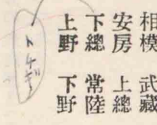 相模 武藏
安房 上總
下總 常陸
上野 下野